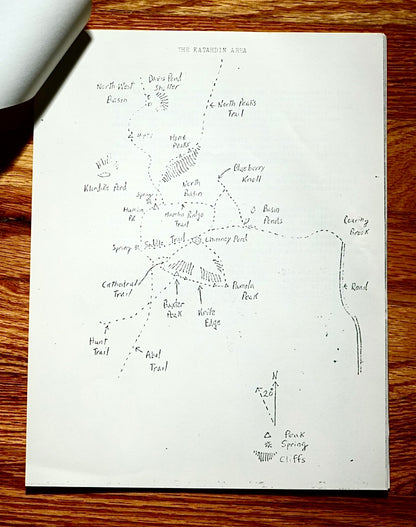 THE KATAHDIN AREA
Davis Pond
Shelter
North West
Basin
North Peaks
Trail
Howe
Peaks
Blueberry
Knoll
Klondike Pond
North
Basin
Spring
Hamlin
Pk
Hamlin Ridge
Trail
Basin
Ponds
Roaring
Brook
Spring
Saddle Trail
Chimney Pond
Cathedral
Trail
Pamola
Peak
Road
Baxter
Peak
Knife
Edge
Hunt
Trail
Abol
Trail
N
20
Peak
Spring
Cliffs